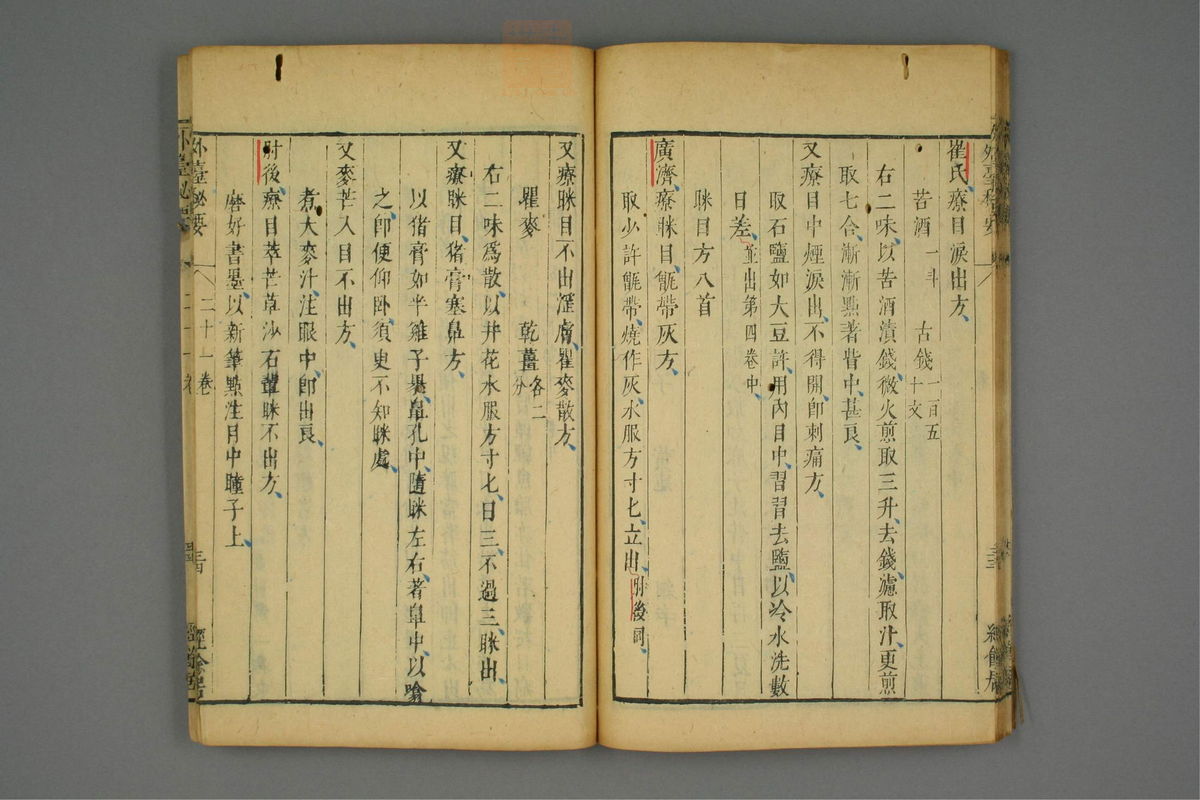 崔氏療目淚出方
苦酒一斗 古錢一百五十文
右二味以苦酒漬錢微火煎取三升去錢濾取汁更煎
取七合漸漸點著眥中甚良
又療目中煙淚出不得開卽刺痛方
取石鹽如大豆許用內目中習習去鹽以冷水洗數
日差並出第四卷中
眯目方八首
廣濟療眯目甑帶灰方
取少許甑帶燒作灰水服方寸匕立出肘後同
又療眯目不出瞿麥散方
瞿麥 乾薑各二分
右二味爲散以井花水服方寸匕日三不過三眯出
又療眯目豬膏塞鼻方
以豬膏如半雞子裹鼻孔中隨眯左右著鼻中以嗡
之卽便仰臥須臾不知眯處
又麥芒入目不出方
煮大麥汁注眼中卽出良
肘後療目莖芒草沙石輩眯不出方
磨好書墨以新筆點注目中瞳子上
外臺秘要
二十一卷
三百
經餘居